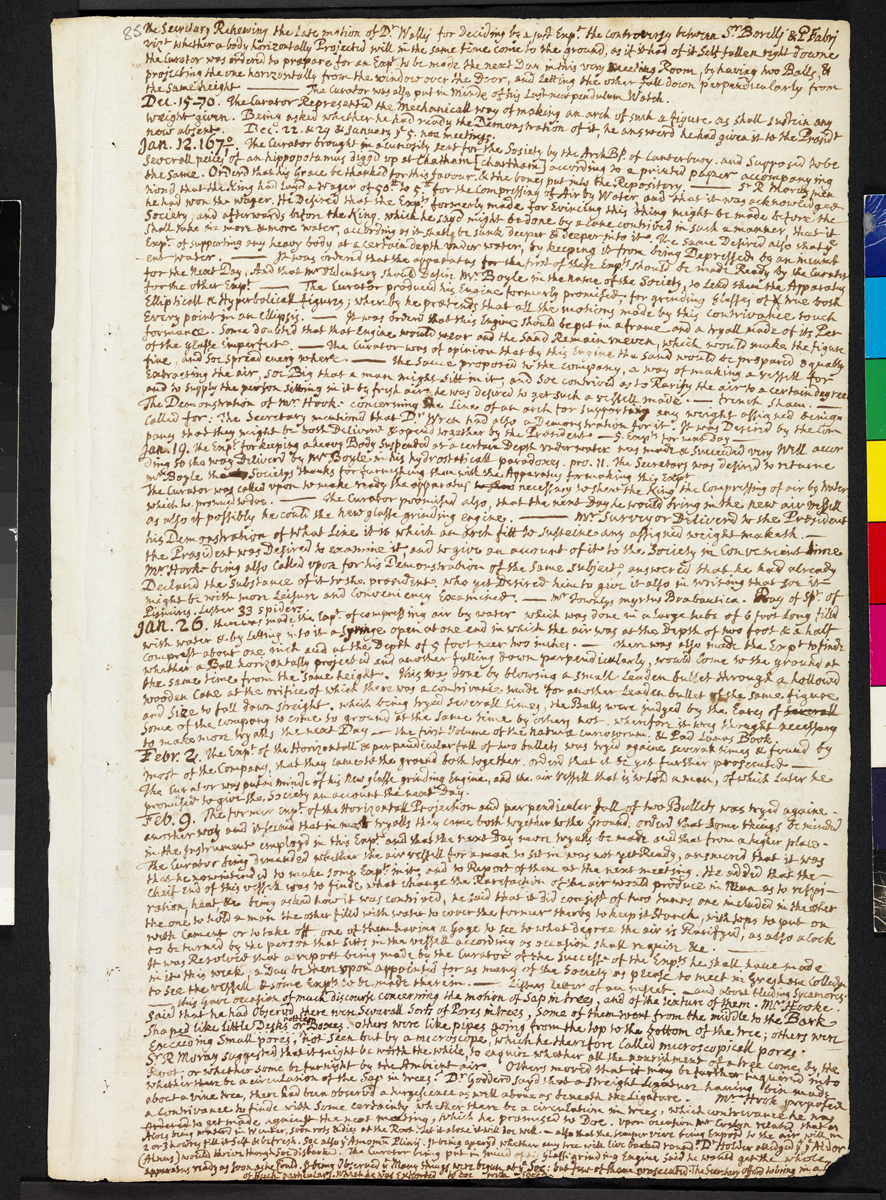 85 The Secretary Renewing the Late motion of Dr. Wallis for deciding by a just Expt. the controversy between Sr. Borelli & P Fabri
vizt. whether a body horizontally Projected will in the same time come to the ground, as if it had of it Self fallen right downe
the Curator was ordered to prepare for an Expt. to be made the next Day in this very Meeting Room, by having two Balls, &
projecting the one horizontally from the window over the Door, and Letting the other fall down perpendicularly from
the same height —— The Curator was also put in minde of his Last new pendulum Watch.
Dec. 15-70. The Curator Represented the Mechanicall way of making an arch of such a figure as shall sustein any
weight given. Being asked whether he had ready the Demonstration of it, he answerd he had given it to the Presidt
now absent. Dec. 22. & 29 & January ye 5. noe meetings.
Jan. 12. 167 0/1. The Curator brought in a curiosity sent for the Society by the ArchBp. of Canterbury. and Supposed to be
Severall peices of an hippopotamus digged up at Chatham [chartham] according to a printed paper accompanying
the Same. Orderd that his Grace be thanked for this favour, & the bones put into the Repository. —— Sr R Moray men
tiond that the King had Layd a wager of 50ll to 5ll for the Compressing of Air by Water and that it was acknowledged
he had won the wager. He Desired that the Expt. formerly made for Evincing this thing might be made before the
Society, and afterwards before the King. which he sayd might be done by a Cane contrived in such a manner, that it
shall take in more & more water, according as it shall be sunk deeper & deeper into it. The same Desired also that ye
Expt. of supporting any heavy body at a certain depth under water, by keeping it from being Depressed by an incumb
ent water. —— It was orderd that the apparatus for the first of these Expts should be made Ready by the Curator
for the Next Day, And that Mr Oldenburg should desire Mr Boyle in the name of the Society, to Lend them the Apparatus
for the other Expt —— The Curator produced his Engine formerly promised, for grinding glasses of true both
Ellipticall & Hyperbolicall figures; wherby he pretends that all the motions made by this contrivance touch
Every point in an Ellipsis. —— It was orderd that this Engine should be put in a frame and a tryall made of its Per
formance. Some doubted that that Engine would wear and the Sand Remain uneven, which would make the figure
of the glasse imperfect. —— The Curator was of opinion that by this Engine the sand would be prepared equably
fine, and soe spread every where. —— the Same proposed to the company, a way of making a vessell for
Extracting the air, soe Big that a man might sitt in it, and soe contrived as to Rarify the air to a certain degree
and to supply the person Sitting in it by fresh air. he was desired to get such a vessell made. —— french Shaw. ——
The Demonstration of Mr Hook concerning the Line of an arch for supporting any weight assigned being
Called for. The Secretary mentiond that Dr. Wren had also a Demonstration for it. It was Desired by the Com
pany that they might be both Deliverd & opened together by the President. —— 5. Expts for next Day ——
Jan. 19. the Expt. for keeping a heavy Body Suspended at a certain Depth under water was made & succeeded very Well accor
ding to the way Deliverd by Mr Boyle in his hydrostaticall paradoxes. pro. 11. the Secretary was desired to returne
Mr. Boyle the Societys thanks for furnishing them with the Apparatus for making this Expt
The Curator was called upon to make ready the apparatus necessary to shew the King the Compressing of air by water
which he promisd to doe. —— the Curator promised also, that the next Day he would bring in the new air vessell
as also if possibly he could the new glasse grinding engine. —— Mr. Surveyor Deliverd to the President
his Demonstration of What Line it is which an Arch fitt to susteine any assigned weight maketh. ——
the President was Desired to examine it, and to give an account of it to the Society in Convenient time
Mr. Hook being also Called upon for his Demonstration of the same Subject, answered that he had already
Declard the Substance of it to the president, who yet Desired him to give it also in writing that soe it
might be with more Leisure and Conveniency Examined. —— Mr. Townlys myrtus Brabantica. Ray of Spt. of
Pismires. Lister 33 spiders.
Jan. 26. there was made the Expt. of compressing air by water which was done in a Large tube of 6 foot Long filld
with water & by Letting into it a syringe open at one end in which the air was at the Depth of two foot & a half
compresst about one inch and at the Depth of 5 foot near two inches. —— there was also made the Expt to finde
whether a Ball horizontally projected and another falling down perpendicularly, would come to the ground at
the same time from the same height. this was done by blowing a small Leaden bullet through a hollowd
wooden Cane at the orifice of which there was a contrivance made for another Leaden bullet of the same figure
and Size to fall down streight. which being tryed severall times, the Balls were judged by the Eares of
some of the company to come to ground at the same time by others not. wherefore it was thought necessary
to make more tryalls the next Day —— the first Volume of the natura curiosorum: & Pad Lanas Book
Febr. 2. The Expt. of the Horizontall & perpendicular fall of two bullets was tryed againe severall times & found by
most of the Company, that they came to the ground both together, orderd that it be yet further prosecuted ——
The Curator was put in minde of his New glasse grinding Engine, and the air Vessell that is to hold a man, of which Later he
promised to give the Society an account the next Day.
Feb. 9. The former Expt. of the Horizontall Projection and perpendicular fall of two Bullets was tryed againe.
another way and it seemd that in most tryalls they came both together to the Ground, orderd that some things be minded
in the Instrument employd in this Expt and that the next Day more tryalls be made and that from a higher place.
The Curator being demanded whether the air vessell for a man to sit in was not yet Ready, answered that it was
that he now intended to make some Expts in it, and to Report of them at the next meeting. He added that the
cheif end of this vessell was to finde what change the Rarefaction of the air would produce in Man as to respi-
ration, heat &c being asked how it was contrived, he said that it did consist of two tunns one included in the other
the one to hold a man the other filld with water to cover the former therby to keep it stanch, with tops to put on
with cement or to take off one of them having a Gage to see to what degree the air is Rarifyed, as also a Cock
to be turned by the person that sitts in the vessell according as occasion shall require &c.
It was Resolved that a report being made by the Curator of the Successe of the Expts he shall have made
in it this week, a Day be then upon appointed for as many of the Society as please to meet in Gresham Colledge
to See the vessell & some Expts to be made therein. —— Listers Letter of an insect, and about bleeding Sycamores.
—— this Gave occasion of much discourse concerning the motion of Sap in trees, and of the texture of them. Mr. Hooke
said that he had observed there were severall sorts of Pores in trees, some of them went from the middle to the Bark
shaped like Little Desks or Boxes. others were like pipes going from the top to the bottom of the tree; others were
Exceeding small pores, not seen but by a microscope, which he therfore called microscopicall pores.
Sr R Moray suggested that it might be worth the while, to enquire whether all the nourishment of a tree come by the
Root; or whether some be furnisht by the Ambient air. Others moved that it may be further inquered into
whether there be a circulation of the Sap in trees. Dr. Goddard sayd that a streight Ligature having bin made
about a vine tree, there had been observed a turgescence as well above as beneath the Ligature. Mr Hook proposed
a contrivance to finde with Some certainty whether there be a circulation in trees, which contrivance he was
ordered to get made against the next meeting, which he promised to Doe. upon occasion Mr Evelyn related that an
Aloes being watered in Winter, soon rots & dies at the Root. Let it alone it will doe well. —— also that the semper vivum being Exposed to the air will in
2 or 3 hours fill it Self & refresh. Soe also ye Amomum Plinij. It being asked whether any tree will soe barked round Dr Holder alledged ye ye Alder
(Alnus) would thrive though soe disbarked. The Curator being put in mind of his Glasse grinding Engine Said he would get the whole
apparatus ready as soon as he could. It being observed yt Many things were begun at ye Soc. but few of them prosecuted. The Secretary offerd to bring in a list
of such particulars, which he was exhorted to doe